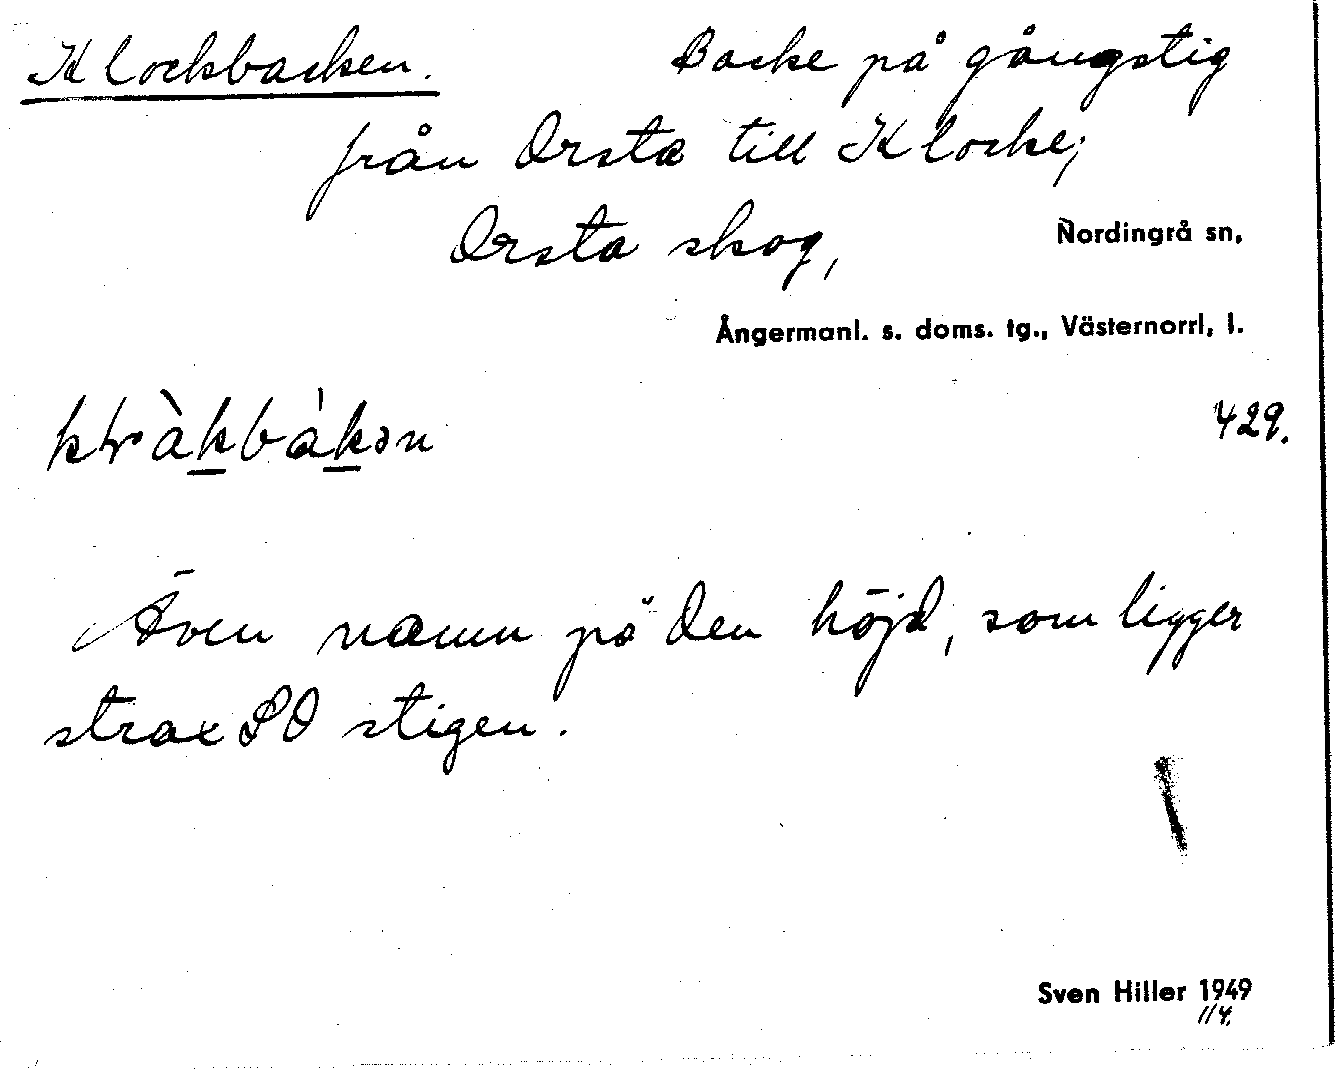 Klockbacken. Backe på gångstig
från Orsta till Klocke;
Orsta skog, Nordingrå sn,
Ångermanl. s. doms. tg., Västernorrl. l.
429.
Även namn på den höjd, som ligger
strax SO stigen.
Sven Hiller 1949
11/4.